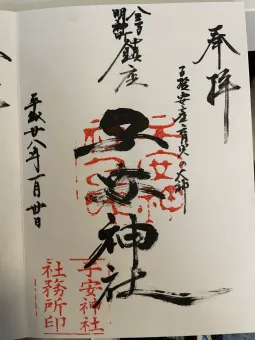 奉拝
安産の大神
八王子
明神町
鎮座
子安神社
子安神社
平成廿八年一月廿日
子安神社
社務所印